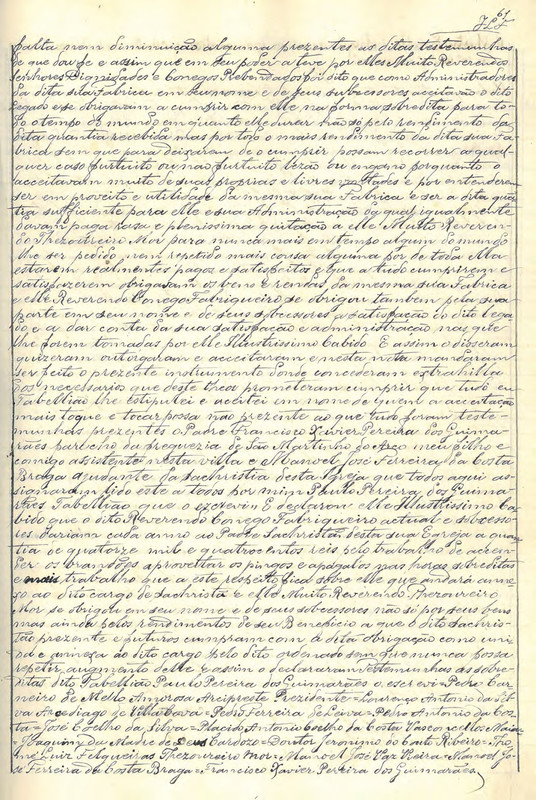 61
falta nem diminuição alguma prezentes as ditas testemunhas
de que dou fe e assim que em seu poder a teve por elles Muito Reverendos
Senhores Dignidades e Conegos Prebendados foi dito que como Administradores
da dita sua Fabrica em seu nome e de seus subcessores aceitavão o dito
Legado e se obrigavam a cumprir com elle na forma sobredita para to-
do o tempo do mundo em quanto elle durar não só pelo rendimento da
dita quantia recebida mas por todo o mais rendimento da dita sua Fa-
brica sem que para deixarem de o cumprir possam recorrer a qual-
quer caso furtuito ou não furtuito lezão ou engano porquanto o
acceitavam muito de suas proprias e livres vontades e por entenderem
ser em proveito e utilidade da mesma sua Fabrica e ser a dita quan-
tia sufficiente para elle e sua Administração da qual igualmente
davam paga raza e plenissima quitação a elle Muito Reveren-
do Thezoureiro Mor para nunca mais em tempo algum do mundo
lhe ser pedido nem repetido mais cousa alguma por de toda ella
estarem realmentes pagos e satisfeitos e que a tudo cumprirem e
satisfazerem obrigavam os bens e rendas da mesma sua Fabrica
e elle Reverendo Conego Fabriqueiro se obrigou tambem pela sua
parte em seu nome e de seus subcessores a satisfação do dito lega-
do e a dar conta da sua satisfação e administração nas que
lhe forem tomadas por elle Illustrissimo Cabido E assim o disseram
quizeram outorgaram e acceitaram e nesta nota mandaram
ser feito o prezente instrumento donde concederam
os necessarios que deste theor prometeram cumprir que tudo eu
Tabellião lhe estipulei e aceitei em nome de quem a acceitação
mais toque e tocar possa não prezente ao que tudo foram teste-
munhas prezentes o Padre Francisco Xavier Pereira dos Guima-
rães parocho da freguezia de São Martinho do meu filho e
comigo assistente nesta villa e Manoel José Ferreira da Costa
Braga ajudante da Sachristia desta Igreja que todos aqui as-
signaram lido este a todos por mim Paulo Pereira dos Guima-
rães Tabellião que o escrevi E declarou elle Illustrissimo Ca-
bido que o dito Reverendo Conego Fabriqueiro actual e subcesso-
res dariam cada anno ao Padre Sachristão desta sua Igreja a quan-
tia de quatorze mil e quatrocentos reis pelo trabalho de accen-
der os brandões aproveitar os pingos e apagalos nas horas sobreditas
e mais trabalho que a este respeito fica sobre elle que andará anne-
xo ao dito cargo de sachrista E elle Muito Reverendo Thezoureiro
Mor se obrigou em seu nome e de seus subcessores não só por seus bens
mas ainda pelos rendimentos de seu Beneficio a que o dito sachris-
tão prezente e futuros cumpram com a dita obrigação como uni-
da e annexa ao dito cargo pelo dito ordenado sem que nunca possa
repetir augmento delle E assim o declararam testemunhas as sobre-
ditas dito Tabellião Paulo Pereira dos Guimarães o escrevi = Pedro Car-
neiro de Mello Amorosa Arcipreste Prezidente = Lourenço Antonio da Sil-
va Arcediago de Villa Cova = Pedro Ferreira de Leiva = Pedro Antonio da Cos-
ta = José Coelho da Silva = Placido Antonio Coelho da Costa Vasconcellos Maia =
Joaquim da Madre de Deus Cardozo = Doutor Jeronimo do Couto Ribeiro = Tho-
mé Luiz Felgueiras Thezoureiro Mor = Manoel José Vaz Vieira = Manoel Jo-
sé Ferreira da Costa Braga = Francisco Xavier Pereira dos Guimarães